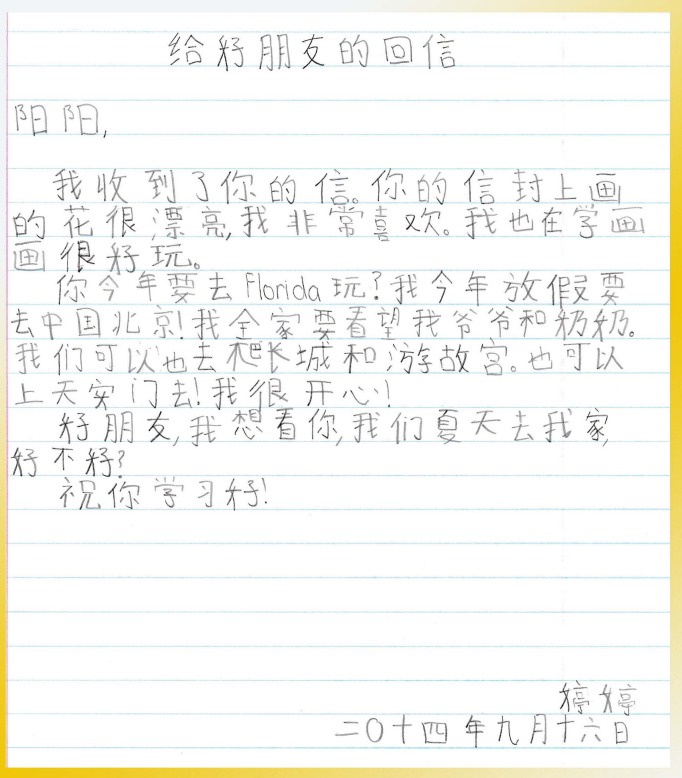 给好朋友的回信
阳阳,
我收到了你的信。你的信封上画
的花很漂亮,我非常喜欢。我也在学画
画很好玩。
你今年要去Florida玩?我今年放假要
去中国北京!我全家要看望我爷爷和奶奶。
我们可以也去爬长城和游故宫。也可以
上天安门去!我很开心!
好朋友,我想看你,我们夏天去我家,
好不好?
祝你学习好!
婷婷
二〇十四年九月十六日